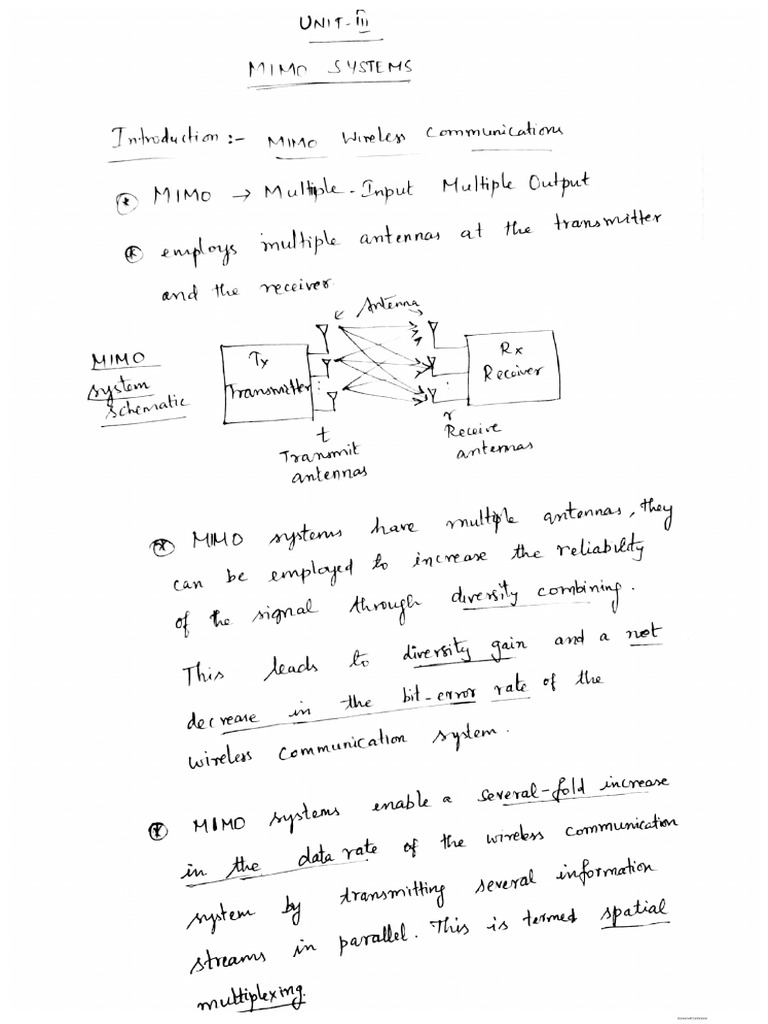 UNIT-III
MIMO SYSTEMS
Introduction :- MIMO Wireless Communications
MIMO → Multiple-Input Multiple Output
employs multiple antennas at the transmitter
and the receiver
Antenna
MIMO
system
schematic
Tx
Transmitter
Rx
Receiver
t
Transmit
antennas
r
Receive
antennas
MIMO systems have multiple antennas, they
can be employed to increase the reliability
of the signal through diversity combining.
This leads to diversity gain and a net
decrease in the bit-error rate of the
wireless communication system.
MIMO systems enable a several-fold increase
in the data rate of the wireless communication
system by transmitting several information
streams in parallel. This is termed spatial
multiplexing.